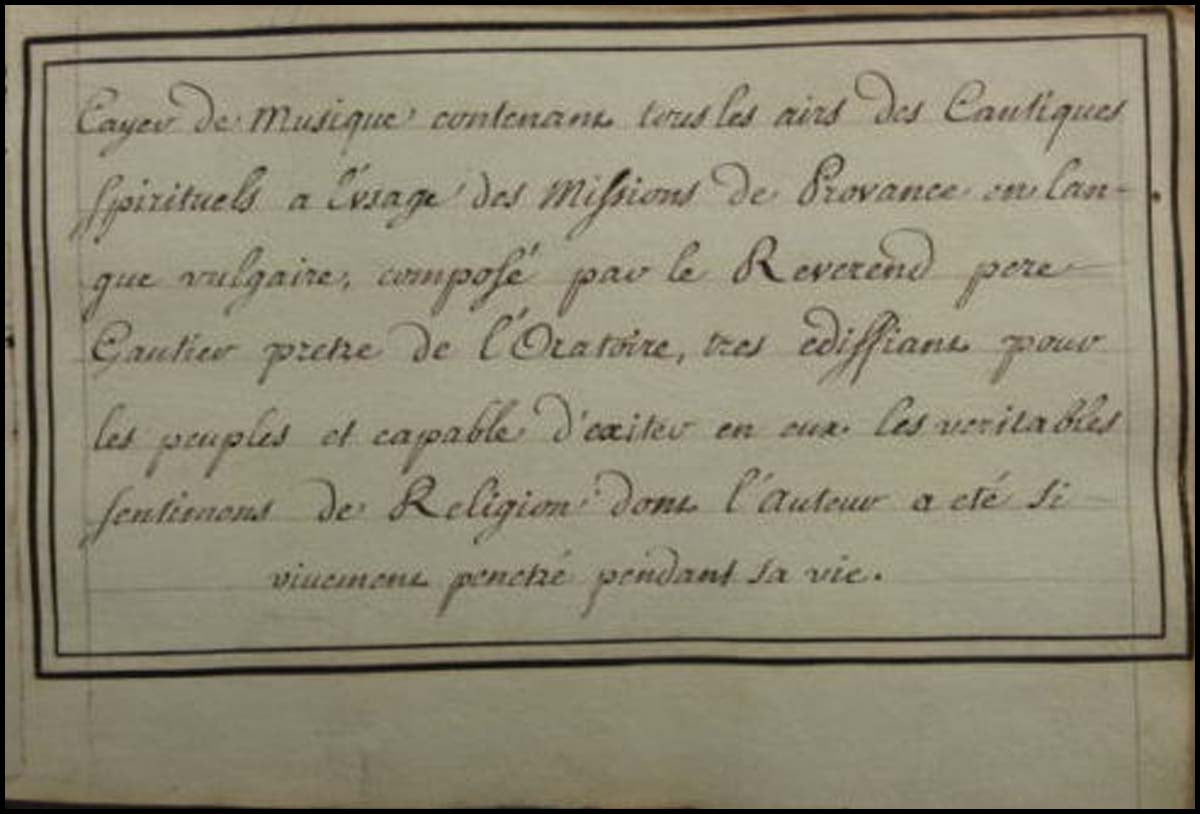 Cayer de Musique contenant tous les airs des Cantiques
spirituels a l'vsage des Missions de Provance en lan-
gue vulgaire, composé par le Reverend pere
Gautier pretre de l'Oratoire, tres ediffiant pour
les peuples et capable d'exiter en eux les veritables
sentimens de Religion dont l'Auteur a eté si
viuement penetré pendant sa vie.